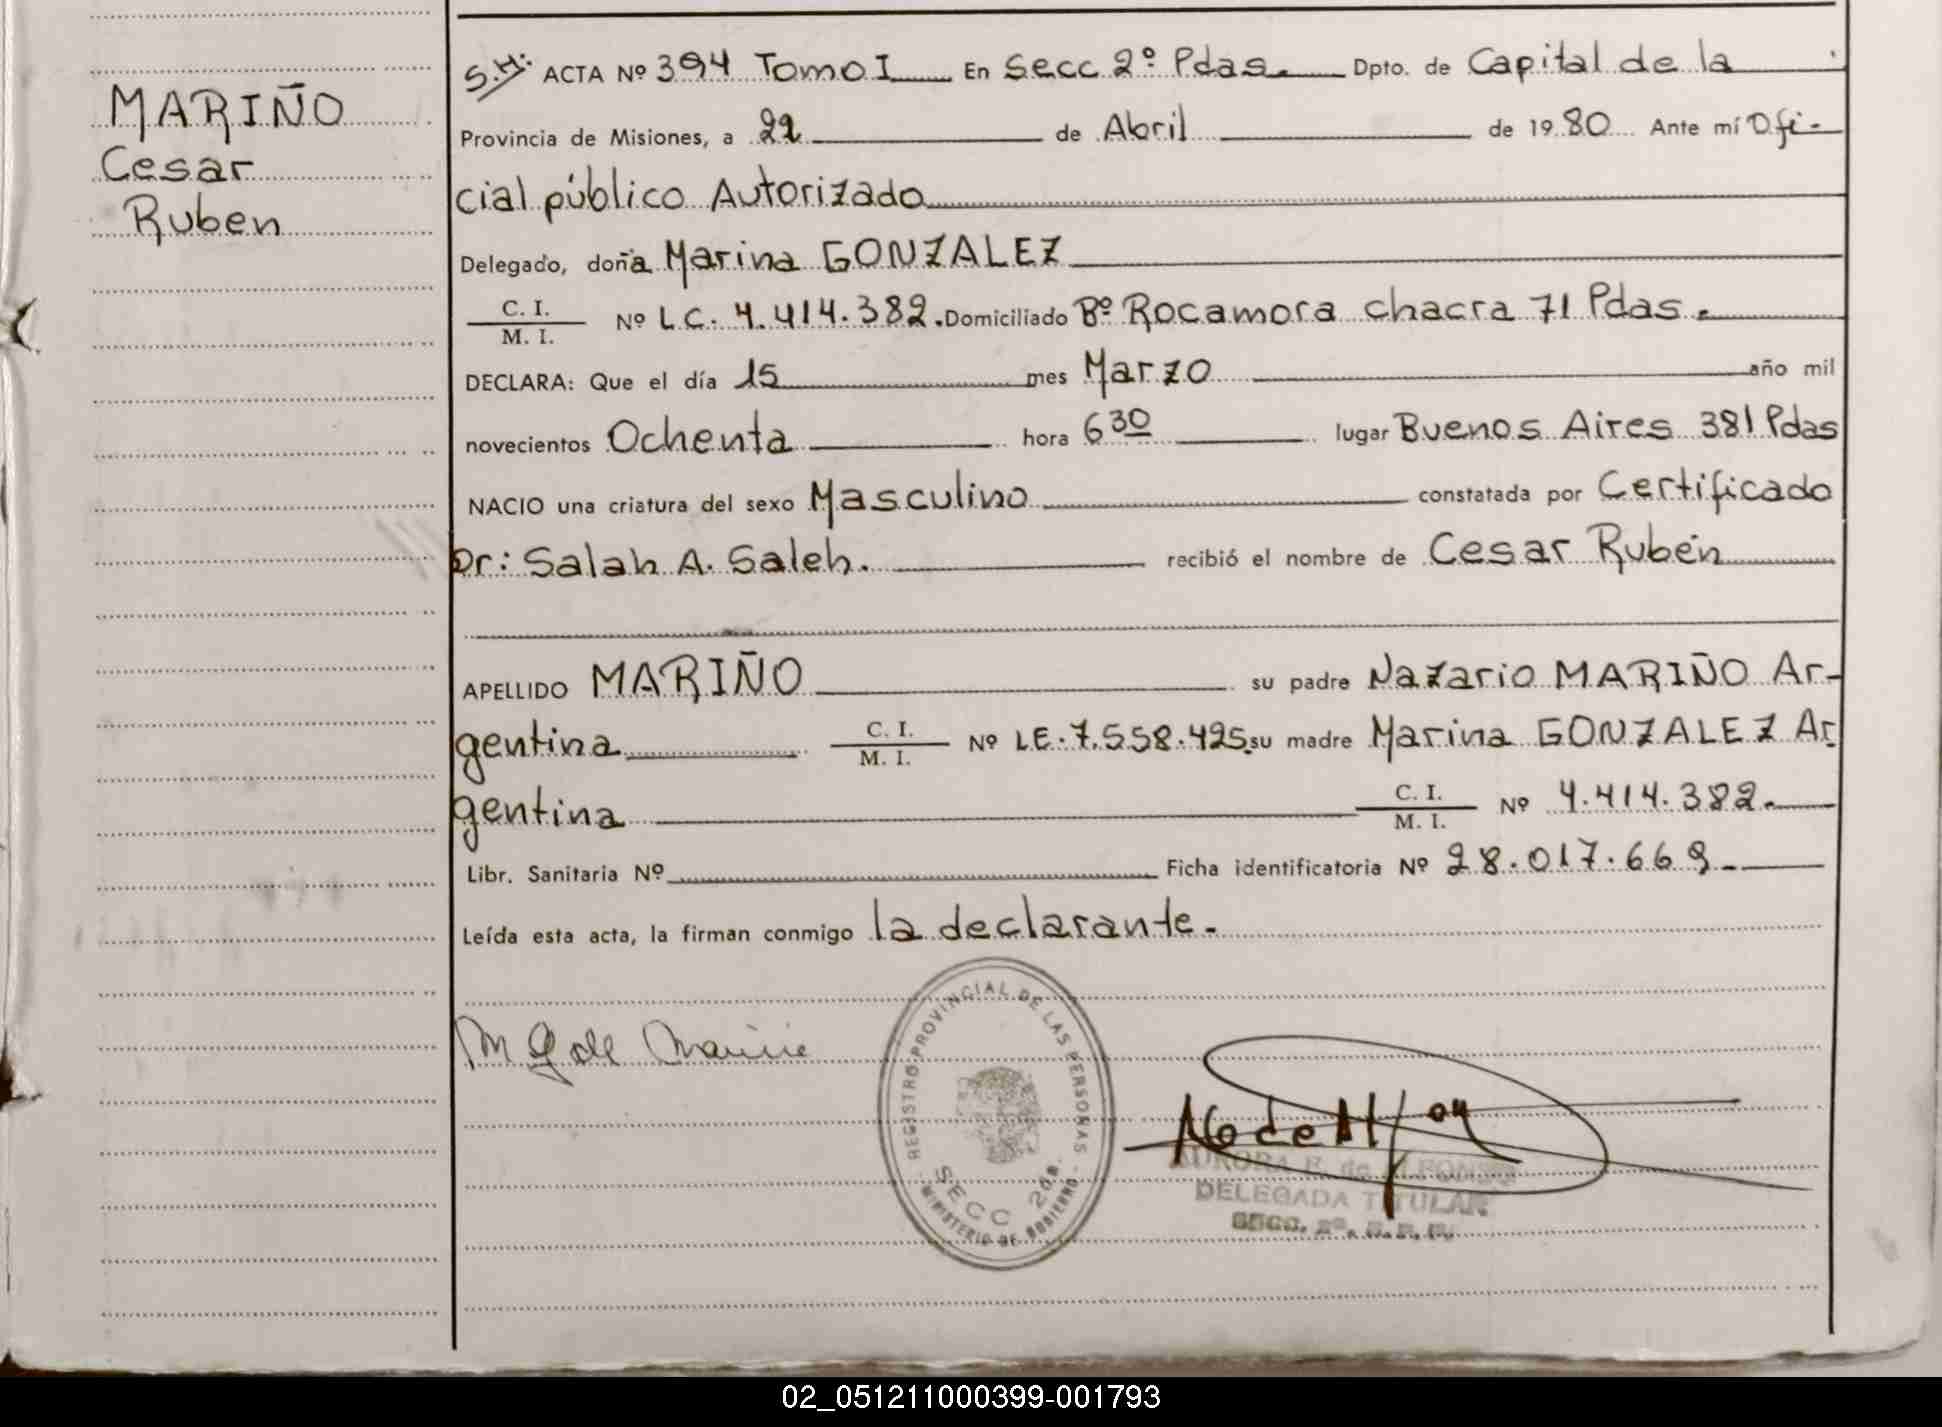 MARIÑO
Cesar
Ruben
S.H: ACTA Nº 394 Tomo I En Secc 2º Pdas. Dpto. de Capital de la
Provincia de Misiones, a 22 de Abril de 1980 Ante mí Ofi-
cial público Autorizado
Delegado, doña Marina GONZALEZ
C. I.
M. I. Nº L.C. 4.414.382. Domiciliado Bº Rocamora chacra 71 Pdas.
DECLARA: Que el día 15 mes Marzo año mil
novecientos Ochenta hora 6 30 lugar Buenos Aires 381 Pdas
NACIO una criatura del sexo Masculino constatada por Certificado
Dr: Salah A. Saleh. recibió el nombre de Cesar Rubén
APELLIDO MARIÑO su padre Nazario MARIÑO Ar-
gentina C. I. M. I. Nº LE. 7.558.425. su madre Marina GONZALEZ Ar
gentina C. I. M. I. Nº 4.414.382.
Libr. Sanitaria Nº Ficha identificatoria Nº 28.017.669
Leída esta acta, la firman conmigo la declarante.
REGISTRO PROVINCIAL DE LAS PERSONAS
SECC 2da.
MINISTERIO DE GOBIERNO
M G de Mariño
AURORA E. de ALFONSO
DELEGADA TITULAR
SECC. 2ª.
02_051211000399-001793